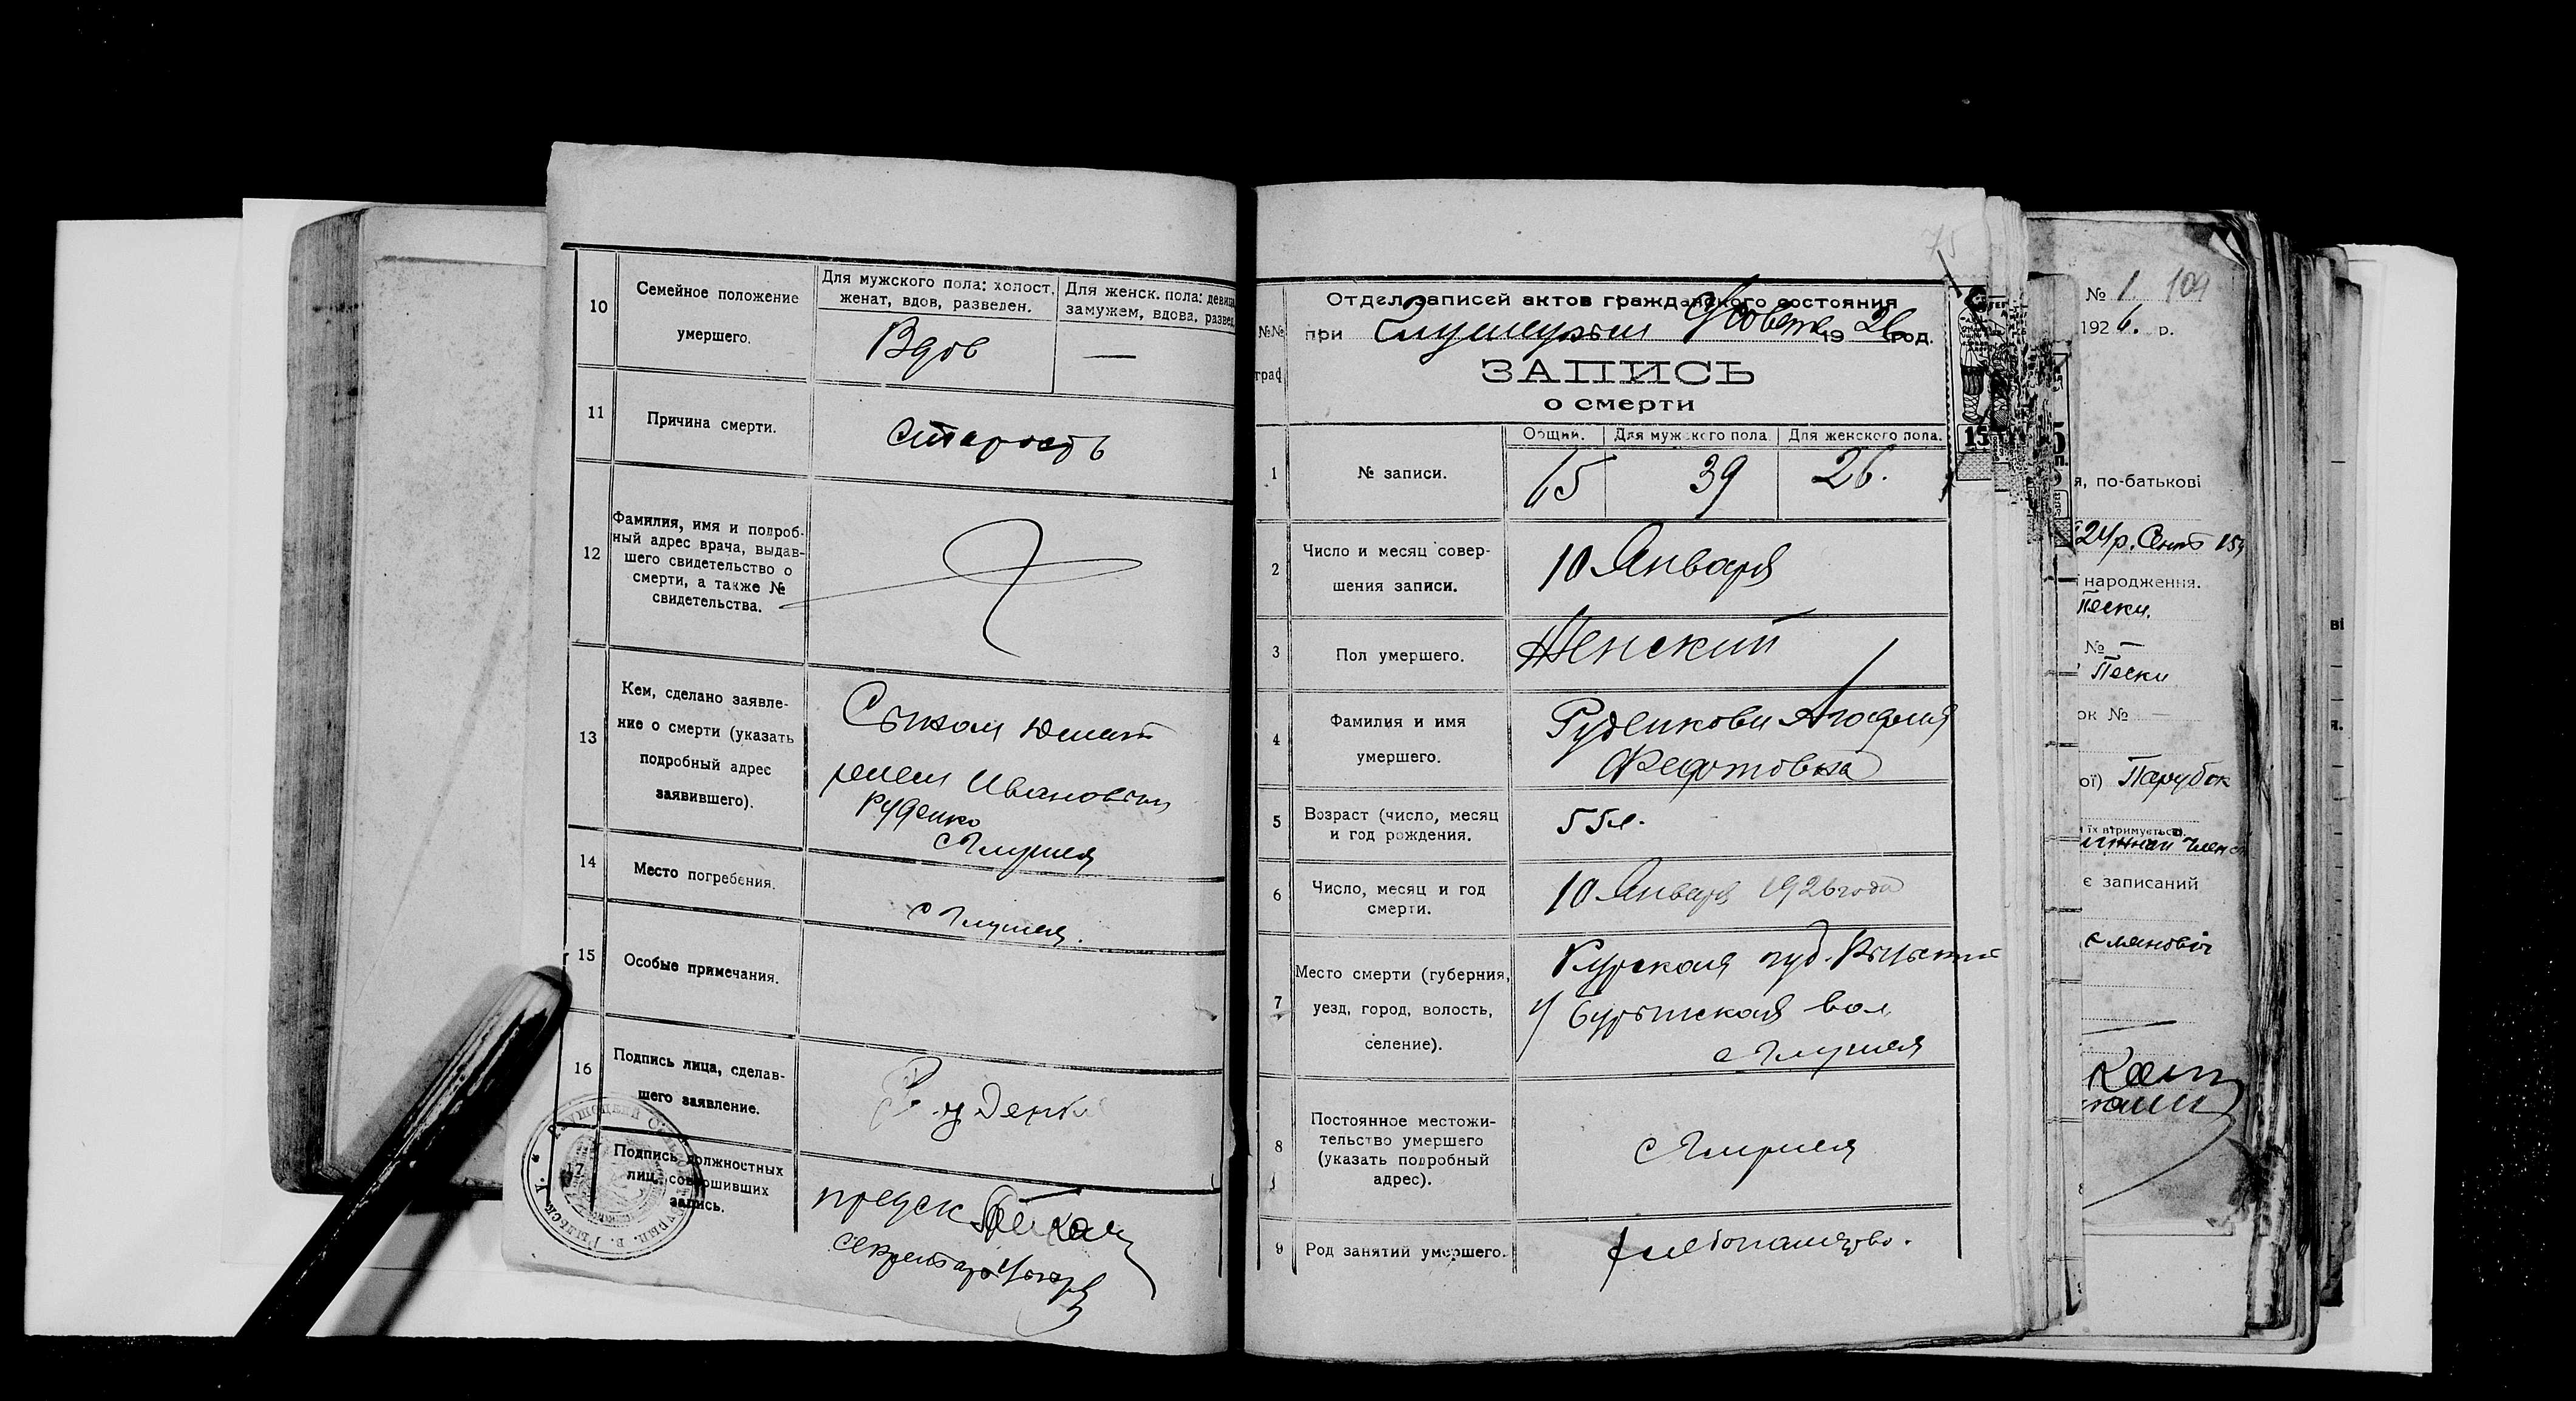 10
Семейное положение
умершего.
Для мужского пола: холост,
женат, вдов, разведен.
Для женск. пола: девица,
замужем, вдова, развед.
Вдов
—
11
Причина смерти.
Старость
12
Фамилия, имя и подроб-
ный адрес врача, выдав-
шего свидетельство о
смерти, а также №
свидетельства.
13
Кем, сделано заявле-
ние о смерти (указать
подробный адрес
заявившего).
Сыном
Ивановым
Руденко
с Глушец
14
Место погребения.
с Глушец.
15
Особые примечания.
16
Подпись лица, сделав-
шего заявление.
Руденко
17
Подпись должностных
лиц, совершивших
запись.
предск
секретарь
75
№№
граф
Отдел записей актов гражданского состояния
при 1926 год.
ЗАПИСЬ
о смерти
Общий. Для мужского пола Для женского пола.
1
№ записи.
65 39 26.
2
Число и месяц совер-
шения записи.
10 Января
3
Пол умершего.
Женский
4
Фамилия и имя
умершего.
Руденкова
Федотовна
5
Возраст (число, месяц
и год рождения.
55 л.
6
Число, месяц и год
смерти.
10 Января 1926 года
7
Место смерти (губерния,
уезд, город, волость,
селение).
Курская губ. Рыльский
у вол
с Глушец
8
Постоянное местожи-
тельство умершего
(указать подробный
адрес).
с Глушец
9
Род занятий умершего.
хлебопашество.
15
№ 1 104
1926. р.
я, по-батькові
народження.
Пески.
№ —
Пески
ок № —
ої) Парубок
їх втримується).
є записаний